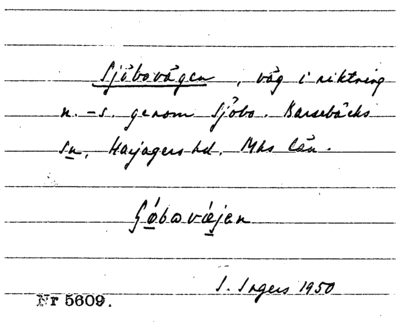 Sjöbovägen, väg i riktning
n.-s. genom Sjöbo. Barsebäcks
sn, Harjagers hd. Mhs län.
I. Ingers 1950
Nr 5609.